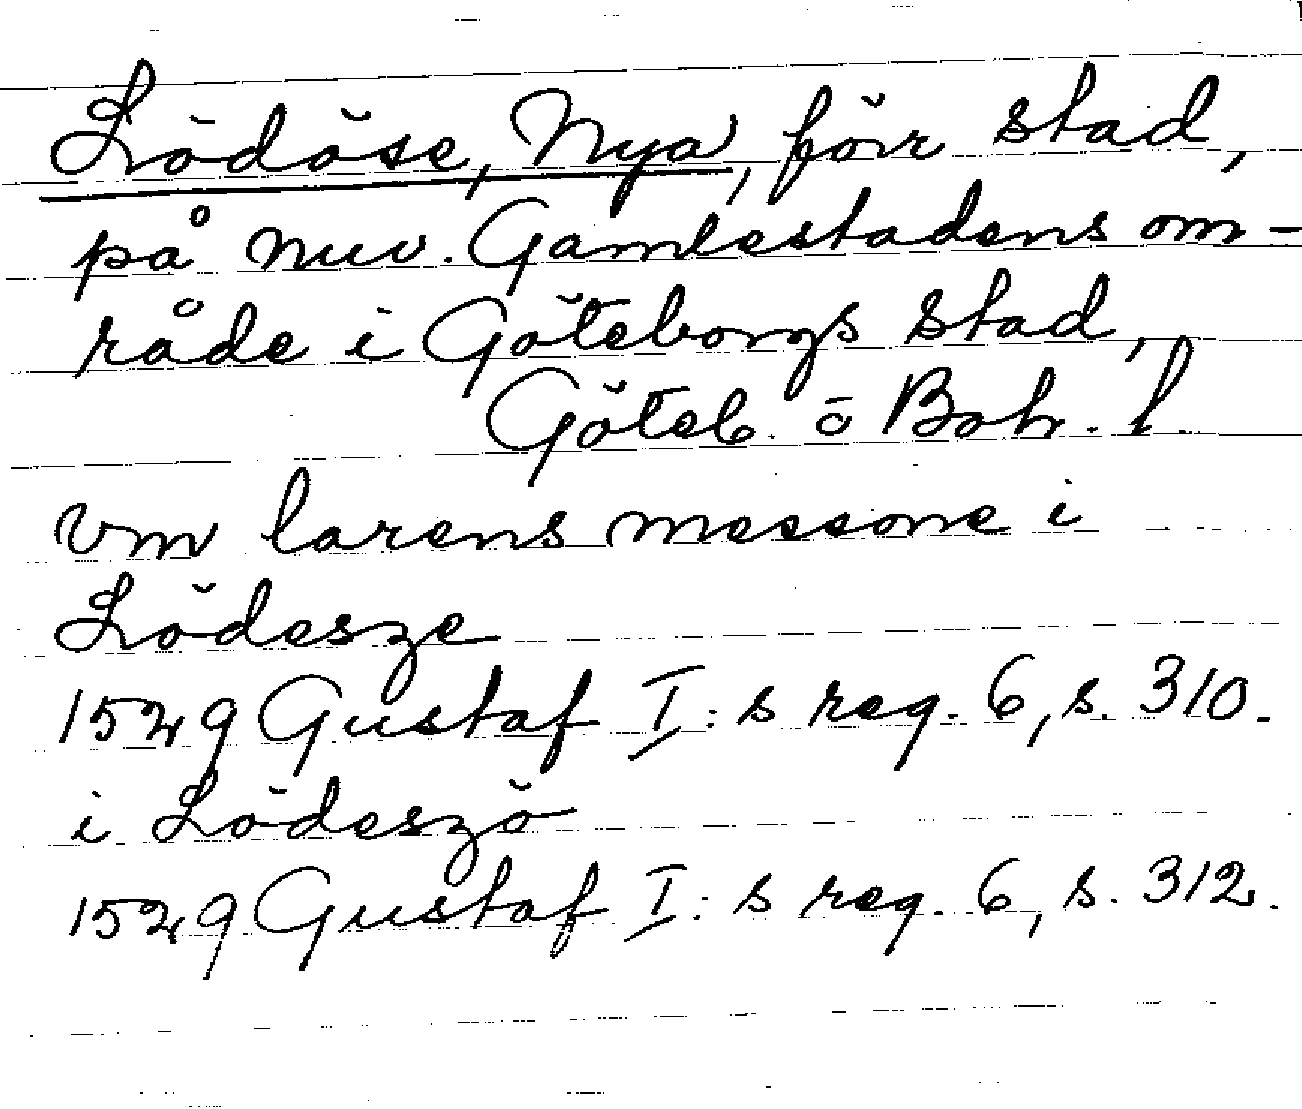 Lödöse, Nya, förr stad,
på nuv. Gamlestadens om-
råde i Göteborgs stad,
Göteb. o Boh. l.
vm larens messone i
Lödesze
1529 Gustaf I:s reg. 6, s. 310.
i Lödeszö
1529 Gustaf I:s reg. 6, s. 312.